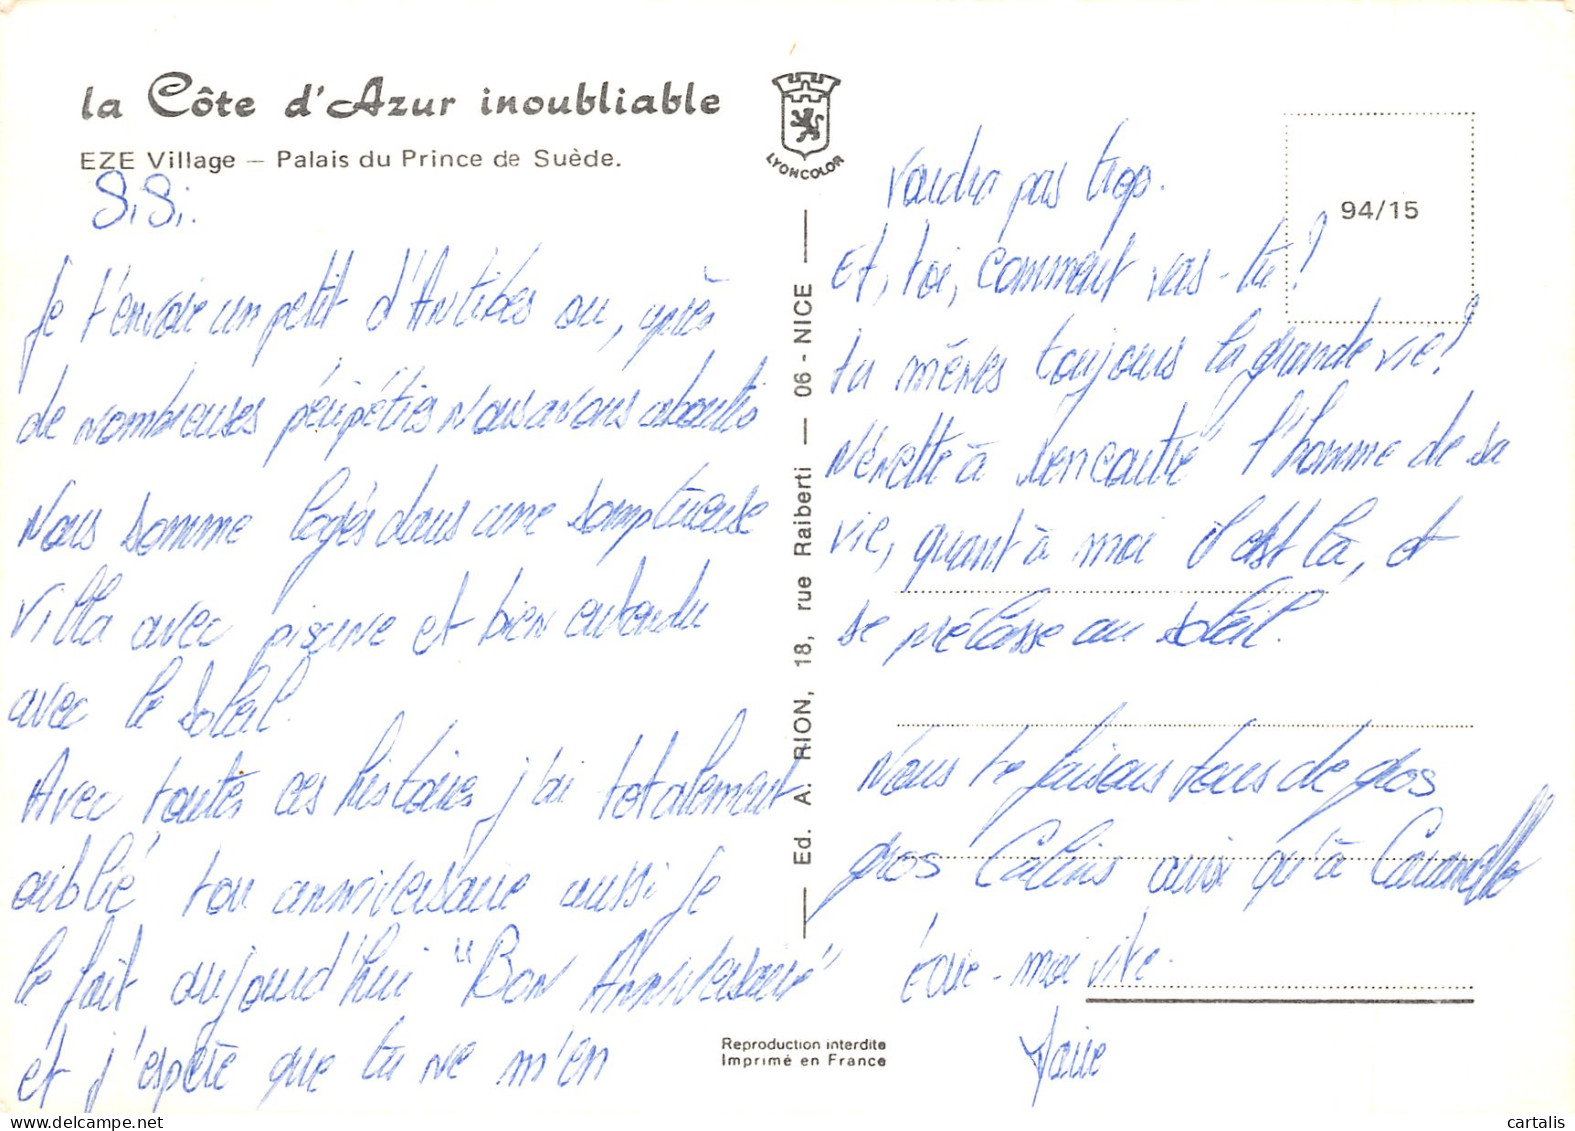 la Côte d'Azur inoubliable
EZE Village — Palais du Prince de Suède.
SiSi.
Je t'envoie un petit d'Antibes ou, après
de nombreuses péripéties nous avons aboutis
Nous somme logés dans une somptueuse
villa avec piscine et bien entendu
avec le soleil.
Avec toutes ces histoires j'ai totalement
oublié ton anniversaire aussi je
le fait aujourd'hui "Bon Anniversaire"
et j'espère que tu ne m'en
voudra pas trop.
Et, toi, comment vas-tu?
tu mènes toujours la grande vie?
Nénette à rencontré l'homme de sa
vie, quant à moi il est là, et
se prélasse au soleil.
Nous te faisons tous de gros
gros Calins ainsi qu'à
écris-moi vite.
LYONCOLOR
94/15
Ed. A. RION, 18, rue Raiberti — 06 - NICE
Reproduction interdite
Imprimé en France
cartalis